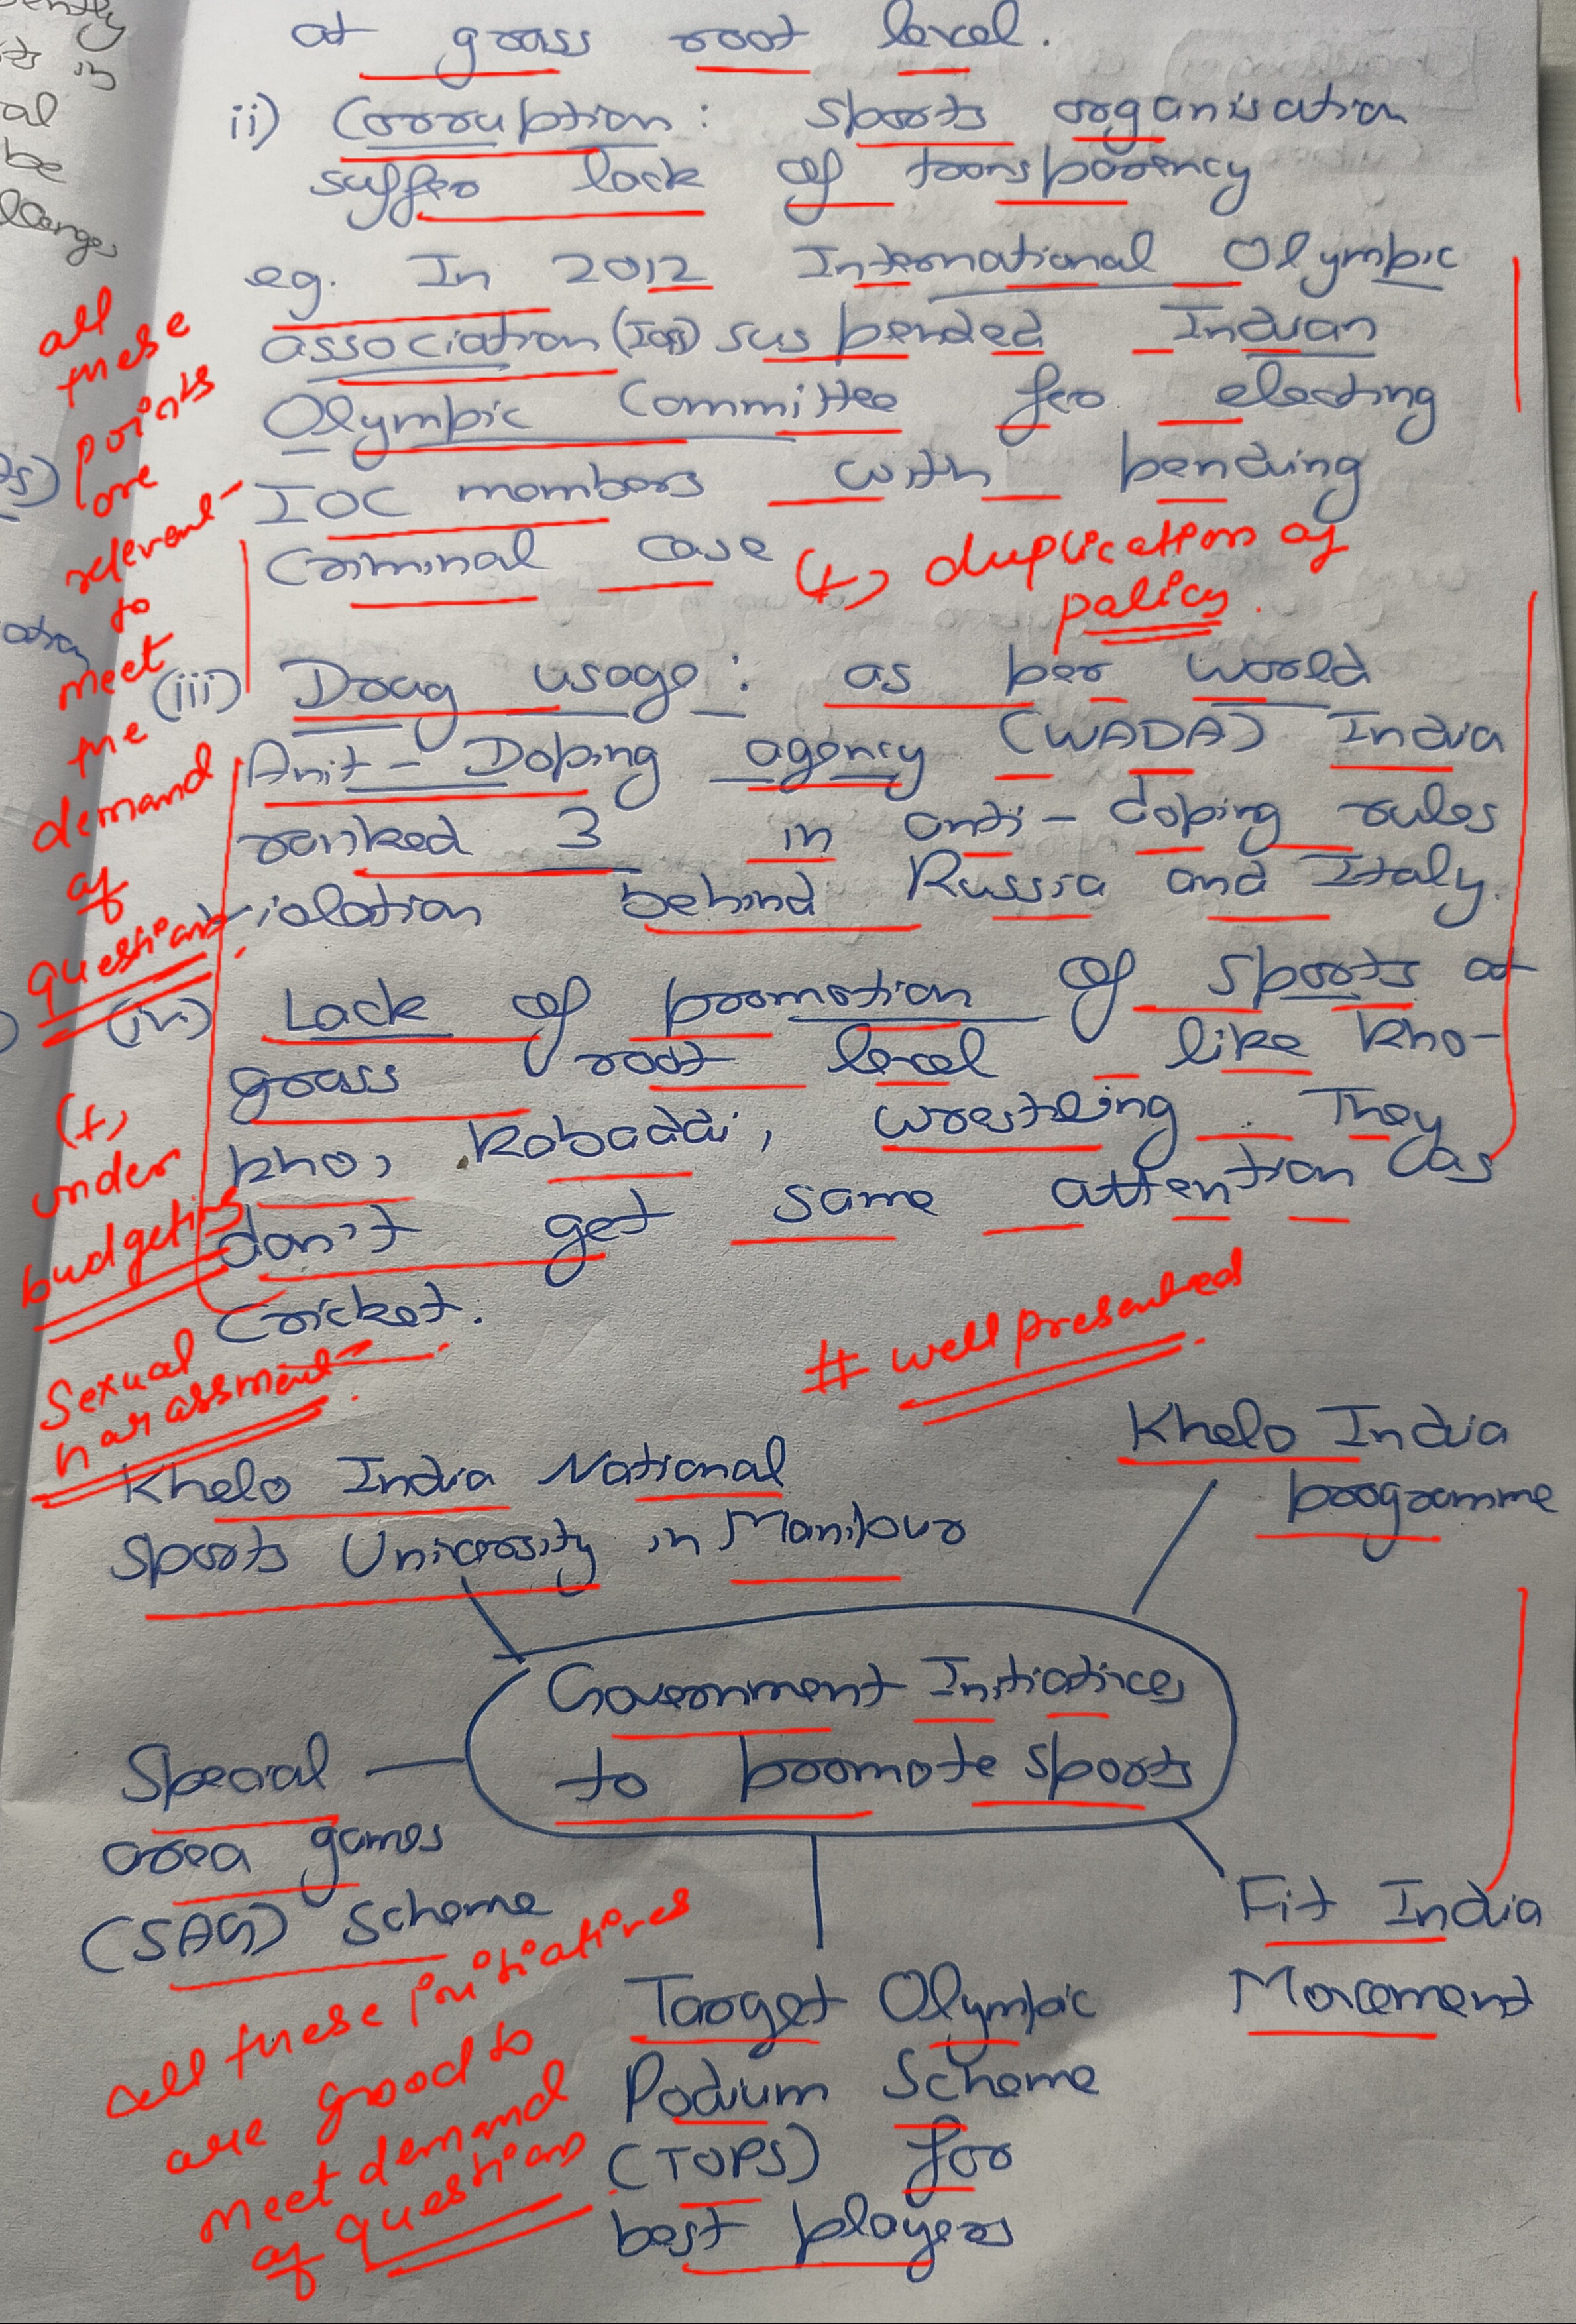 at grass root level.
ii) Corruption: sports organisation
suffer lack of transparency
eg. In 2012 International Olympic
association (IOA) suspended Indian
Olympic Committee for electing
IOC members with pending
criminal case
↳ duplication of
policy.
(iii) Drug usage: as per world
Anit-Doping agency (WADA) India
ranked 3 in anti-doping rules
violation behind Russia and Italy.
(iv) Lack of promotion of sports at
grass root level like kho-
kho, kabaddi, wrestling. They
don't get same attention as
Cricket.
all
these
points
are
relevant
to
meet
the
demand
of
question
↳
under
budgeting
Sexual
harassment
# well presented
Khelo India National
Sports University in Manipur
Khelo India
programme
Government Initiatives
to promote sports
Special
area games
(SAG) Scheme
Target Olympic
Podium Scheme
(TOPS) for
best players
Fit India
Movement
all these initiatives
are good to
meet demand
of question
ently
ts in
al
be